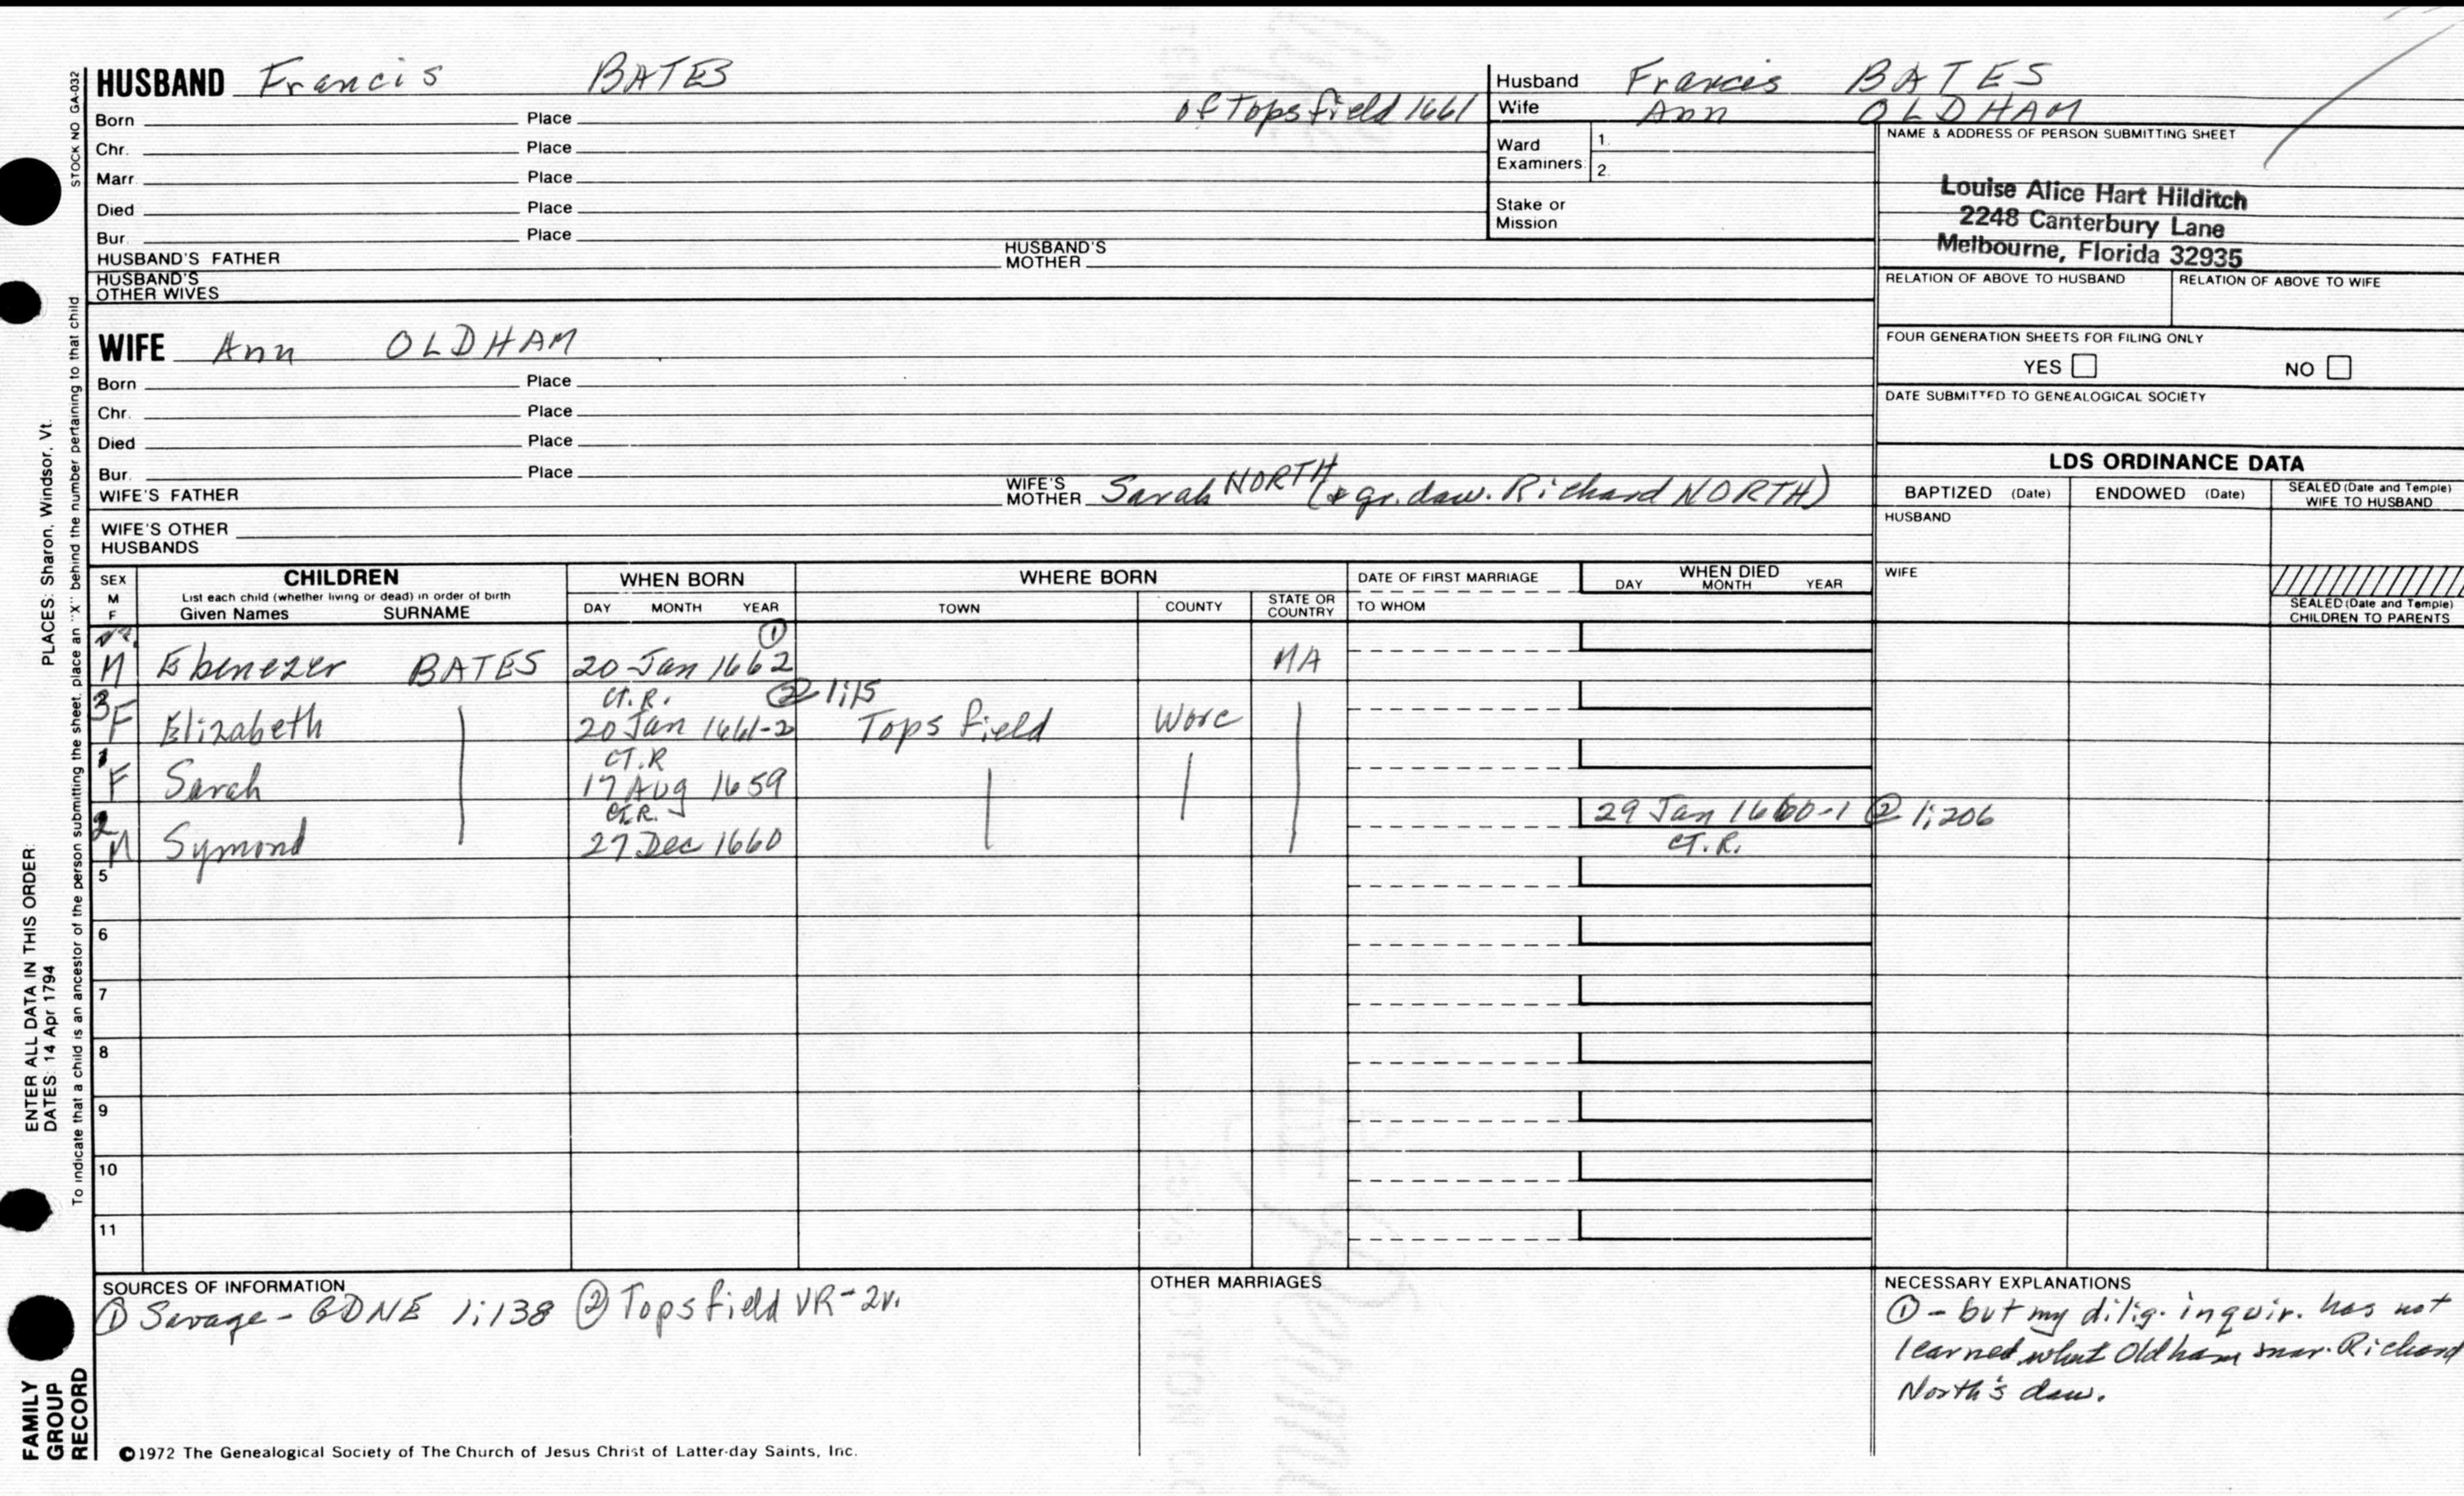 HUSBAND Francis BATES
of Topsfield 1661
Born Place
Chr. Place
Marr. Place
Died Place
Bur. Place
HUSBAND'S FATHER HUSBAND'S MOTHER
HUSBAND'S OTHER WIVES
Husband Francis BATES
Wife Ann OLDHAM
Ward Examiners 1.
2.
Stake or Mission
NAME & ADDRESS OF PERSON SUBMITTING SHEET
Louise Alice Hart Hilditch
2248 Canterbury Lane
Melbourne, Florida 32935
RELATION OF ABOVE TO HUSBAND RELATION OF ABOVE TO WIFE
FOUR GENERATION SHEETS FOR FILING ONLY
YES NO
DATE SUBMITTED TO GENEALOGICAL SOCIETY
WIFE Ann OLDHAM
Born Place
Chr. Place
Died Place
Bur. Place
WIFE'S FATHER WIFE'S MOTHER Sarah NORTH (& gr. daw. Richard NORTH)
WIFE'S OTHER HUSBANDS
LDS ORDINANCE DATA
BAPTIZED (Date) ENDOWED (Date) SEALED (Date and Temple) WIFE TO HUSBAND
HUSBAND
WIFE
SEALED (Date and Temple) CHILDREN TO PARENTS
SEX M F CHILDREN WHEN BORN WHERE BORN DATE OF FIRST MARRIAGE WHEN DIED
List each child (whether living or dead) in order of birth
Given Names SURNAME DAY MONTH YEAR TOWN COUNTY STATE OR COUNTRY TO WHOM DAY MONTH YEAR
①
M Ebenezer BATES 20 Jan 1662 MA
CT.R. ② 1:15
3 F Elizabeth 20 Jan 1661-2 Topsfield Worc
CT.R
1 F Sarah 17 Aug 1659
CT.R. 29 Jan 1660-1 ② 1:206
2 M Symond 27 Dec 1660 CT.R.
5
6
7
8
9
10
11
SOURCES OF INFORMATION
① Savage - GDNE 1:138 ② Topsfield VR-2v.
OTHER MARRIAGES
NECESSARY EXPLANATIONS
① - but my dilig. inquir. has not
learned what Oldham mar. Richard
North's daw.
©1972 The Genealogical Society of The Church of Jesus Christ of Latter-day Saints, Inc.
STOCK NO GA-032
To indicate that a child is an ancestor of the person submitting the sheet, place an "X" behind the number pertaining to that child
PLACES: Sharon, Windsor, Vt.
ENTER ALL DATA IN THIS ORDER:
DATES: 14 Apr 1794
FAMILY
GROUP
RECORD